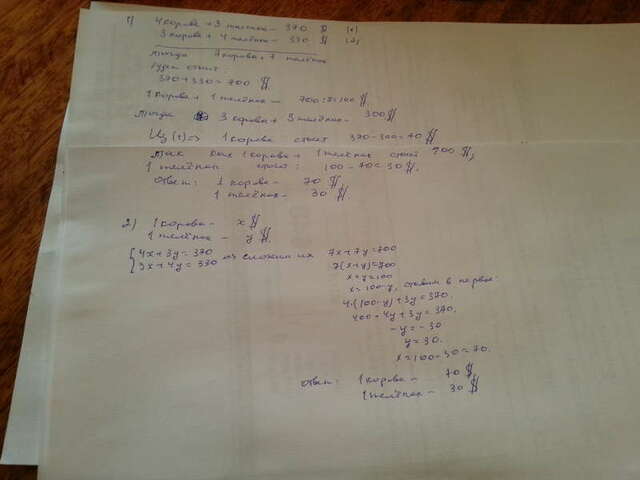 1) 4 коровы + 3 телёнка - 370 $ (1)
3 коровы + 4 телёнка - 330 $ (2)
тогда 7 коров + 7 телёнка
будет стоит:
370+330=700 $.
1 корова + 1 телёнка - 700:7=100 $.
тогда 3 коровы + 3 телёнка - 300 $
Из (1) => 1 корова стоит 370-300=70 $
так как 1 корова + 1 телёнок стоит 100 $,
1 телёнок : 100-70=30 $.
ответ: 1 корова - 70 $
1 телёнка - 30 $.
2) 1 корова - x $
1 телёнка - y $.
{4x+3y=370
3x+4y=330 сложим их 7x+7y=700
7(x+y)=700
x+y=100
x=100-y, ставим в первое:
4·(100-y)+3y=370.
400-4y+3y=370.
-y=-30
y=30.
x=100-30=70.
ответ: 1 корова - 70 $,
1 телёнка - 30 $